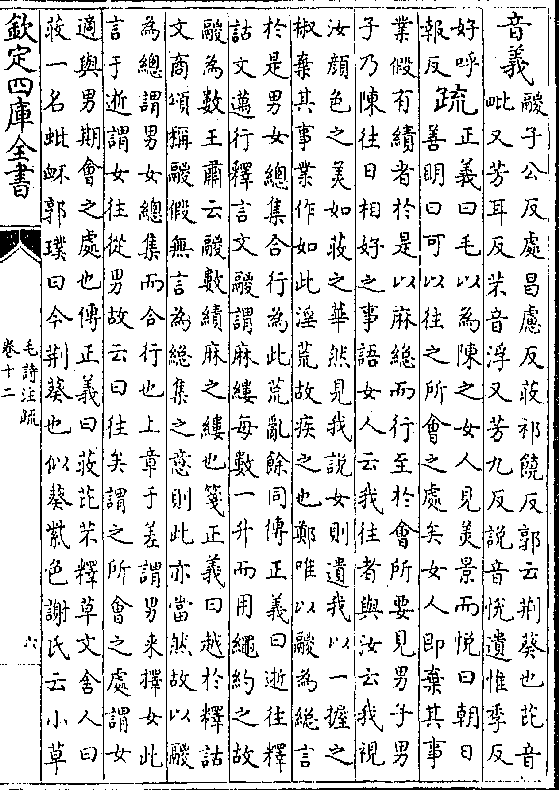 音義鬷子公反處昌慮反荍祁饒反郭云荆葵也芘音
毗又芳耳反芣音浮又芳九反說音悅遺惟季反
好呼報反疏正義曰毛以為陳之女人見美景而悅曰朝日
善明曰可以往之所會之處矣女人即棄其事
業假有績者於是以麻總而行至於會所要見男子男
子乃陳往日相好之事語女人云我往者與汝云我視
汝顔色之美如荍之華然見我說女則遺我以一握之
椒棄其事業作如此淫荒故疾之也鄭唯以鬷為總言
於是男女總集合行為此荒亂餘同傳正義曰逝往釋
詁文邁行釋言文鬷謂麻縷每數一升而用繩約之故
鬷為數王肅云鬷數績麻之縷也箋正義曰越於釋詁
文商頌稱鬷假無言為總集之意則此亦當然故以鬷
為總謂男女總集而合行也上章于差謂男来擇女此
言于逝謂女往從男故云曰往矣謂之所會之處謂女
適與男期會之處也傳正義曰荍芘芣釋草文舍人曰
荍一名蚍衃郭璞曰今荆葵也似葵紫色謝氏云小草
欽定四庫全書
毛詩注疏
卷十二
六